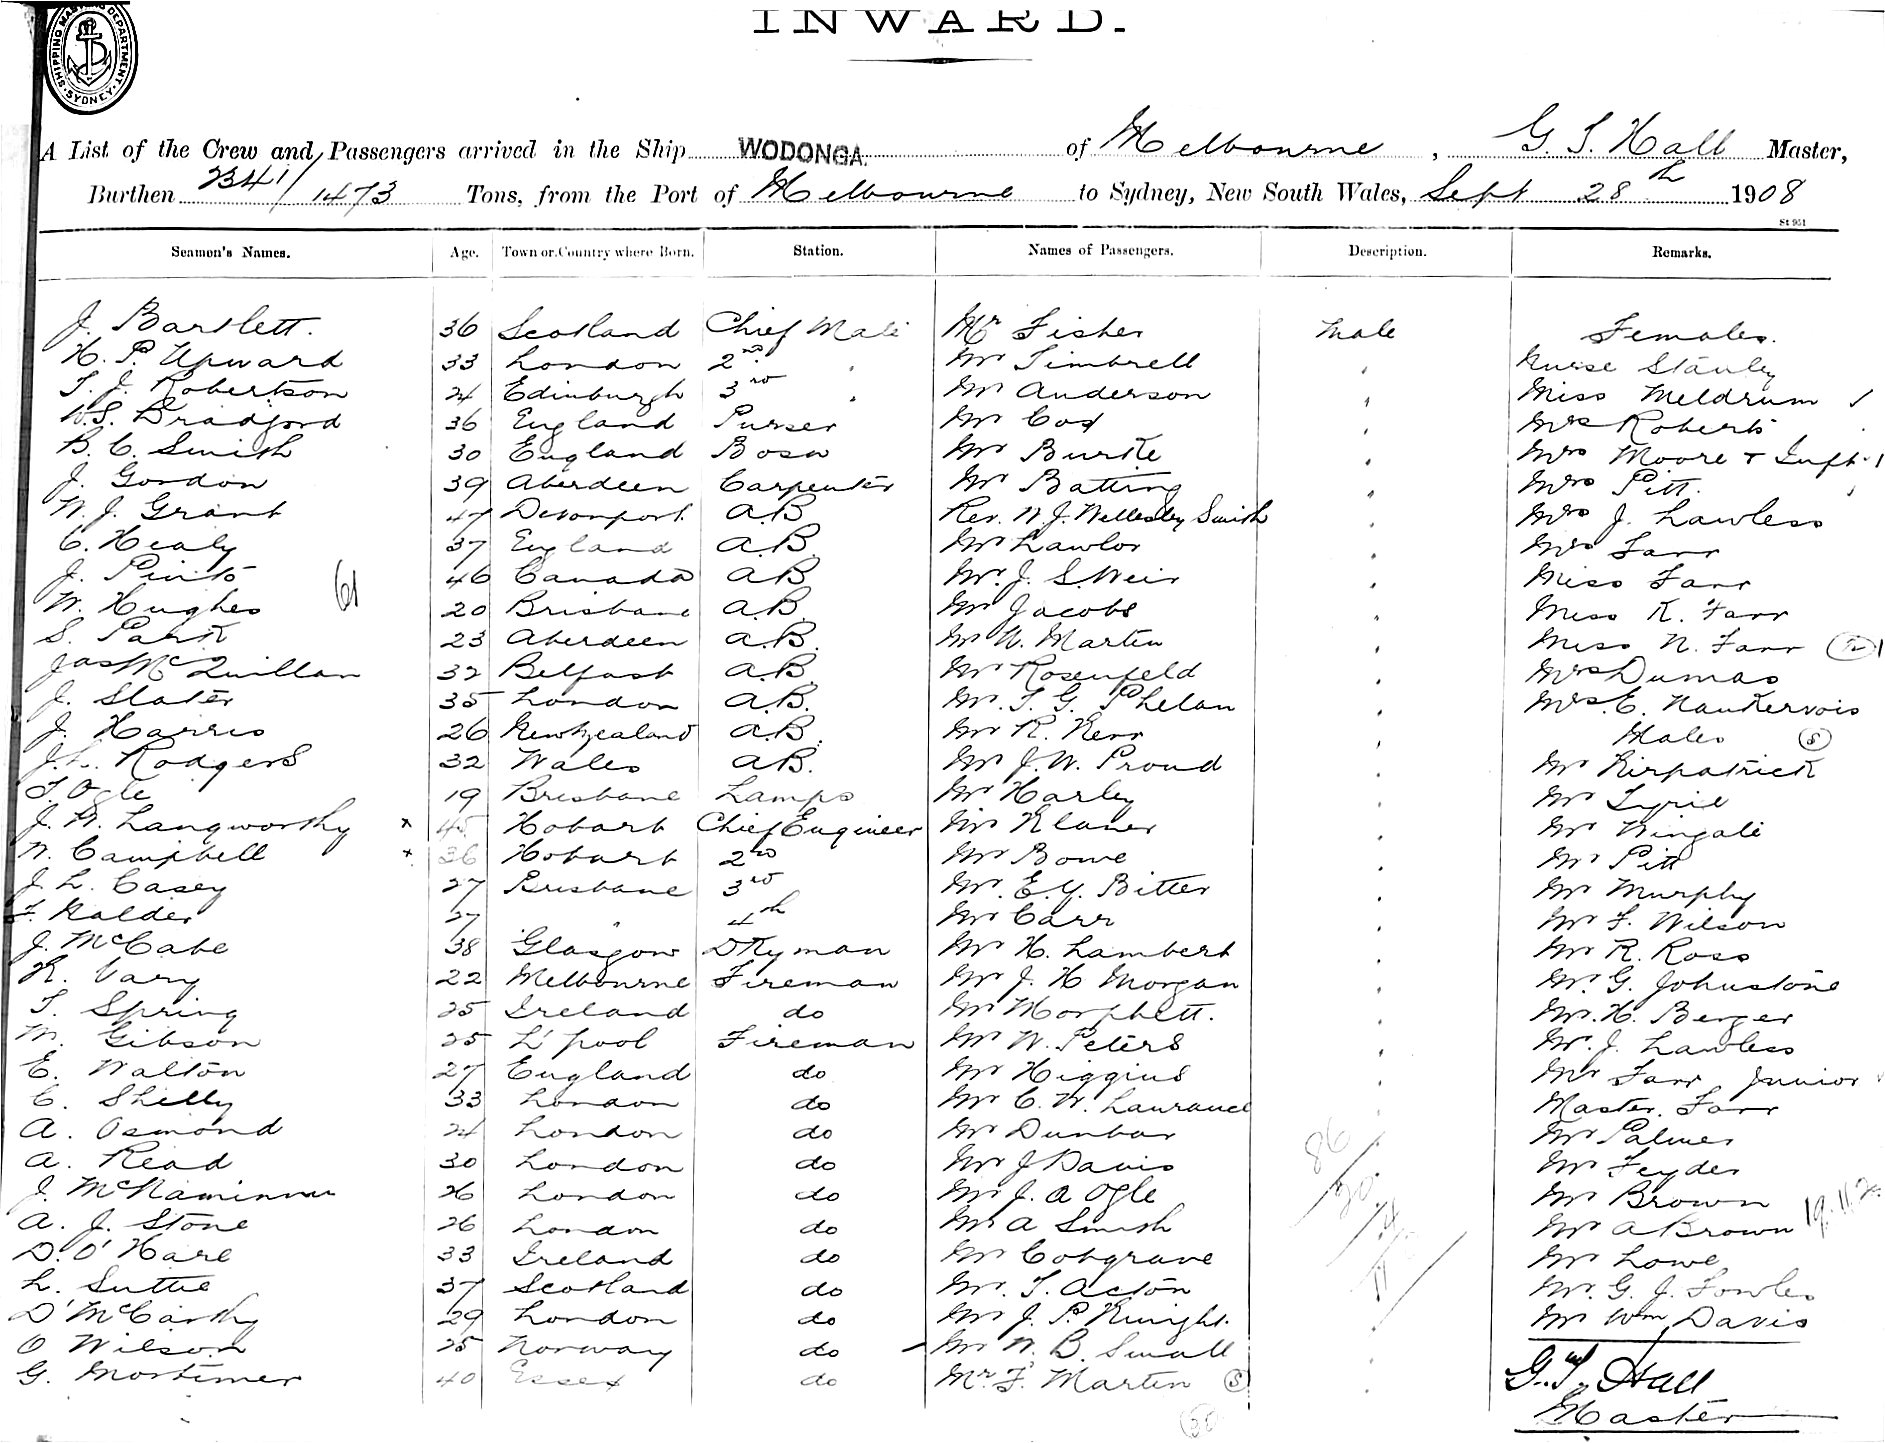 INWARD.
SHIPPING MASTERS DEPARTMENT SYDNEY
A List of the Crew and Passengers arrived in the Ship WODONGA of Melbourne, G. S. Hall Master,
Burthen 2341/1473 Tons, from the Port of Melbourne to Sydney, New South Wales, Sept 28th 1908
St 951
Seamen's Names. Age. Town or Country where Born. Station. Names of Passengers. Description. Remarks.
J. Bartlett. 36 Scotland Chief Mate Mr Fisher Male Females.
H. P. Upward 33 London 2nd " Mr Timbrell " Nurse Stanley
T. J. Robertson 24 Edinburgh 3rd " Mr Anderson " Miss Meldrum
W.S. Bradford 36 England Purser Mr Cox " Mrs Roberts
B. C. Smith 30 England Bosn Mr Burke " Mrs Moore + Inft. 1
J. Gordon 39 Aberdeen Carpenter Mr Batting " Mrs Pitt.
W. J. Grant 47 Devonport A.B. Rev. W J. Wellesley Smith " Mrs J. Lawless
C. Healy 37 England A.B. Mr Lawlor " Mrs Farr
J. Pinto 46 Canada A.B. Mr. J. S. Weir " Miss Farr
W. Hughes 61 20 Brisbane A.B. Mr Jacobs " Miss K. Farr
S. Park 23 Aberdeen A.B. Mr W. Martin " Miss N. Farr 12
Jas McQuillan 32 Belfast A.B. Mr Rosenfeld " Mrs Dumas
J. Slater 35 London A.B. Mr. T. G. Phelan " Mrs. E. Nankervois
J. Harris 26 New Zealand A.B. Mr R. Kerr " Males (S)
J. Rodgers 32 Wales A.B. Mr J. W. Proud " Mr Kirpatrick
T. Ogle 19 Brisbane Lamps Mr Harley " Mr Tyrie
J. W. Langworthy x 45 Hobart Chief Engineer Mr Klaner " Mr Wingate
W. Campbell x 36 Hobart 2nd Mr Bowe " Mr Pitt
J. L. Casey 27 Brisbane 3rd Mr. E. Y. Bitter " Mr Murphy
F. Kalder 27 " 4th Mr Carr " Mr F. Wilson
J. McCabe 38 Glasgow DKyman Mr H. Lambert " Mr R. Ross
R. Vary 22 Melbourne Fireman Mr J. H Morgan " Mr. G. Johnstone
T. Spring 25 Ireland do Mr Morphett. " Mr. H. Berger
M. Gibson 25 L'pool Fireman Mr W. Peters " Mr. J. Lawless
E. Walton 27 England do Mr Higgins " Mr Farr Junior
C. Shelly 33 London do Mr C. W. Laurance " Master. Farr
A. Osmond 24 London do Mr Dunbar 86 " Mr Palmer
A. Read 30 London do Mr J Davis " Mr Feyder
J. McNaminin 26 London do Mr J. A Ogle Mr Brown
A. J. Stone 26 London do Mr A Smith Mr A Brown
D. O'Hare 33 Ireland do Mr Cosgrave Mr Lowe
L. Suttie 37 Scotland do Mr. T. Acton Mr. G. J. Fowles
D'McCarthy 29 London do Mr J. P. Knight. " Mr Wm Davis
O Wilson 25 Norway do Mr W B. Small " G. S. Hall
G. Mortimer 40 Essex do Mr. F. Martin (S) " Master